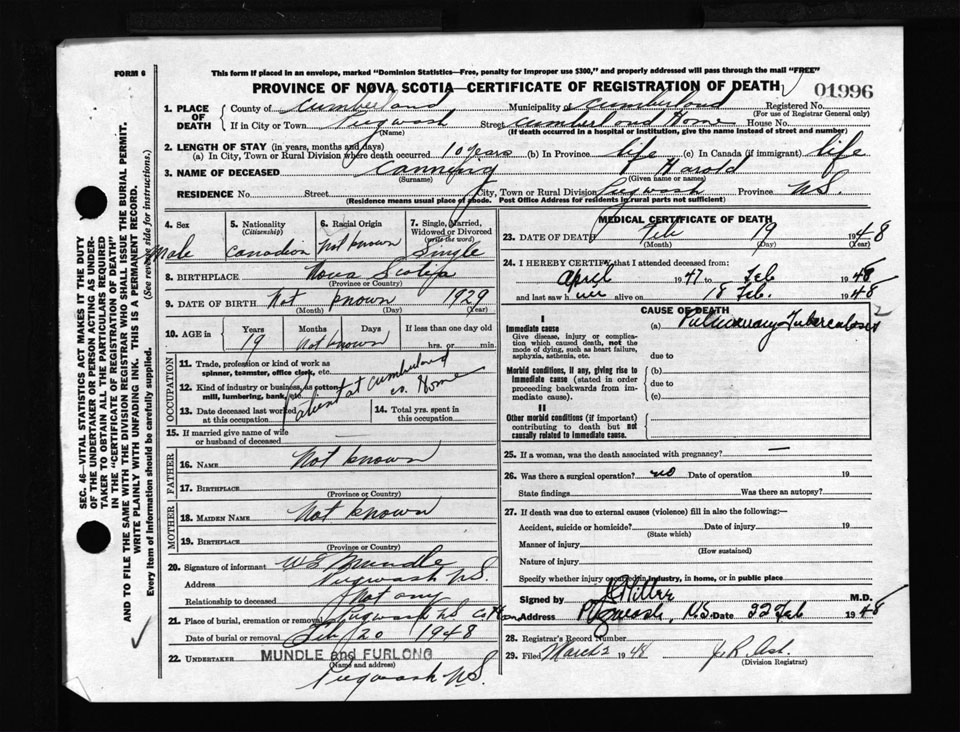 FORM 9
This form if placed in an envelope, marked "Dominion Statistics—Free, penalty for improper use $300," and properly addressed will pass through the mail "FREE"
PROVINCE OF NOVA SCOTIA—CERTIFICATE OF REGISTRATION OF DEATH
01996
1. PLACE OF DEATH
County of Cumberland Municipality of Cumberland Registered No.
(For use of Registrar General only)
If in City or Town Pugwash Street Cumberland Home House No.
(Name) (If death occurred in a hospital or institution, give the name instead of street and number)
2. LENGTH OF STAY (in years, months and days)
(a) In City, Town or Rural Division where death occurred 10 years (b) In Province life (c) In Canada (if immigrant) life
3. NAME OF DECEASED Canning Harold
(Surname) (Given name or names)
RESIDENCE No. Street City, Town or Rural Division Pugwash Province N.S.
(Residence means usual place of abode. Post Office Address for residents in rural parts not sufficient)
4. Sex Male
5. Nationality (Citizenship) Canadian
6. Racial Origin Not known
7. Single, Married, Widowed or Divorced (write the word) Single
8. BIRTHPLACE Nova Scotia
(Province or Country)
9. DATE OF BIRTH Not known 1929
(Month) (Day) (Year)
10. AGE in Years Months Days If less than one day old
19 Not known hrs. or min.
OCCUPATION
11. Trade, profession or kind of work as spinner, teamster, office clerk, etc.
12. Kind of industry or business, as cotton mill, lumbering, bank, etc.
at Cumberland Co. Home
13. Date deceased last worked at this occupation
14. Total yrs. spent in this occupation
15. If married give name of wife or husband of deceased —
FATHER
16. NAME Not known
17. BIRTHPLACE
(Province or Country)
MOTHER
18. MAIDEN NAME Not known
19. BIRTHPLACE
(Province or Country)
20. Signature of informant Mundle
Address Pugwash N.S.
Relationship to deceased Not any
21. Place of burial, cremation or removal Pugwash N.S.
Date of burial or removal Feb 20 1948
22. UNDERTAKER MUNDLE and FURLONG
(Name and address)
Pugwash N.S.
MEDICAL CERTIFICATE OF DEATH
23. DATE OF DEATH Feb 19 1948
(Month) (Day) (Year)
24. I HEREBY CERTIFY that I attended deceased from:
April 1947 to Feb 1948
and last saw him alive on 18 Feb. 1948
CAUSE OF DEATH
I
Immediate cause
Give disease, injury or complication which caused death, not the mode of dying, such as heart failure, asphyxia, asthenia, etc.
(a) Pulmonary Tuberculosis
due to
Morbid conditions, if any, giving rise to immediate cause (stated in order proceeding backwards from immediate cause).
(b)
due to
(c)
II
Other morbid conditions (if important) contributing to death but not causally related to immediate cause.
25. If a woman, was the death associated with pregnancy? —
26. Was there a surgical operation? no Date of operation 19
State findings Was there an autopsy?
27. If death was due to external causes (violence) fill in also the following:—
Accident, suicide or homicide? Date of injury 19
(State which)
Manner of injury
(How sustained)
Nature of injury
Specify whether injury occurred in industry, in home, or in public place
Signed by Hiller M.D.
Address Pugwash, N.S. Date 22 Feb 1948
28. Registrar's Record Number
29. Filed March 2 1948 J. R. Ash.
(Division Registrar)
SEC. 46—VITAL STATISTICS ACT MAKES IT THE DUTY
OF THE UNDERTAKER OR PERSON ACTING AS UNDER-
TAKER TO OBTAIN ALL THE PARTICULARS REQUIRED
IN THE "CERTIFICATE OF REGISTRATION OF DEATH"
AND TO FILE THE SAME WITH THE DIVISION REGISTRAR WHO SHALL ISSUE THE BURIAL PERMIT.
WRITE PLAINLY WITH UNFADING INK. THIS IS A PERMANENT RECORD.
Every item of information should be carefully supplied. (See reverse side for instructions.)